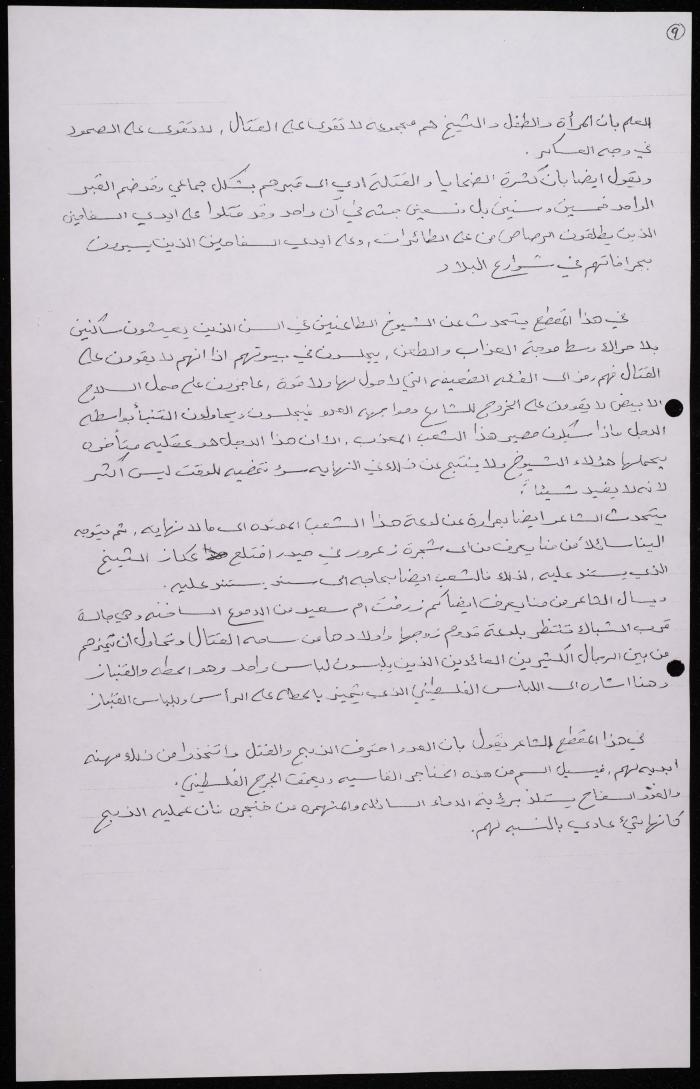 ٩
العلم بان المرأة والطفل والشيخ هم مجموعه لا تقوى على القتال , لا تقوى على الصمود
في وجه العسكر .
ويقول ايضا بان كثرة الضحايا والقتلة ادى الى قبرهم بشكل جماعي وقد ضم القبر
الواحد خمسين وستين بل وتسعين جثه في آن واحد وقد قتلوا على ايدي السفاحين
الذين يطلقون الرصاص من على الطائرات , وعلى ايدي السفاحين الذين يسيرون
بجرافاتهم في شوارع البلاد
في هذا المقطع يتحدث عن الشيوخ الطاعنين في السن الذين يعيشون ساكنين
بلا حراك وسط موجة العذاب والطعن , يجلسون في بيوتهم اذ انهم لا يقوون على
القتال فهم رمز الى الفئه الضعيفه التي لا حول لها ولا قوة , عاجزون على حمل السلاح
الابيض لا يقدرون على الخروج للشارع ومواجهه العدو فيجلسون ويحاولون التنبأ بواسطه
الدجل ماذا سيكون مصير هذا الشعب المعذب , الا ان هذا الدجل هو عقليه متأخره
يحملها هؤلاء الشيوخ ولا ينتج عن ذلك في النهايه سوى تمضيه للوقت ليس اكثر
لانه لا يفيد شيئاً .
يتحدث الشاعر ايضا بمرارة عن لوعة هذا الشعب الممتده الى ما لا نهايه , ثم يتوجه
الينا سائلا من منا يعرف من اى شجرة زعرور في صيدر اقتلع عكاز الشيخ
الذي يستند عليه , لذلك فالشعب ايضا بحاجه الى سند يستند عليه .
ويسال الشاعر من منا يعرف ايضا كم زرفت ام سعيد من الدموع الساخنه وهي جالسة
قرب الشباك تنتظر بلوعة قدوم زوجها واولادها من ساحه القتال وتحاول ان تميزهم
من بين الرجال الكثيرين العائدين الذين يلبسون لباس واحد وهو الحطه والقنباز
وهنا اشاره الى اللباس الفلسطيني الذي يتميز بالحطه على الرأس وبلباس القنباز
في هذا المقطع الشاعر يقول بان العدو احترف الذبح والقتل واتخذوا من ذلك مهنه
ابديه لهم , فيسيل السم من هذه الخناجر القاسيه ويعمق الجرح الفلسطيني .
والعدو السفاح يستلذ برؤية الدماء السائله والمنهمره من خنجره فان عمليه الذبح
كانها شيء عادي بالنسبه لهم .